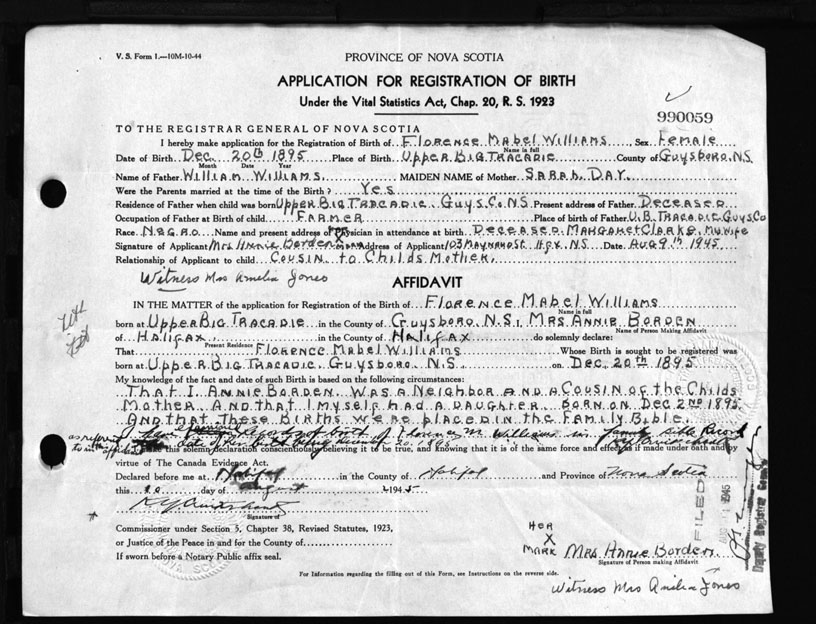 V. S. Form 1.—10M-10-44
PROVINCE OF NOVA SCOTIA
APPLICATION FOR REGISTRATION OF BIRTH
Under the Vital Statistics Act, Chap. 20, R. S. 1923
990059
TO THE REGISTRAR GENERAL OF NOVA SCOTIA
I hereby make application for the Registration of Birth of Florence Mabel Williams, Sex Female
Name in full
Date of Birth Dec. 20th 1895 Place of Birth Upper Big Tracadie County of Guysboro, N.S.
Month Date Year
Name of Father William Williams. MAIDEN NAME of Mother Sarah Day.
Were the Parents married at the time of the Birth? Yes
Residence of Father when child was born Upper Big Tracadie. Guys. Co. N.S. Present address of Father Deceased
Occupation of Father at Birth of child Farmer Place of birth of Father U.B. Tracadie. Guys. Co
Race Negro Name and present address of Physician in attendance at birth Deceased Margaret Clarke. Midwife
Signature of Applicant Mrs Annie Borden Address of Applicant 103 Maynard St Hfx. N.S Date Aug 9th 1945.
Relationship of Applicant to child Cousin to Childs Mother.
Witness Mrs Amelia Jones
AFFIDAVIT
IN THE MATTER of the application for Registration of the Birth of Florence Mabel Williams
Name in full
born at Upper Big Tracadie in the County of Guysboro N.S., Mrs Annie Borden
Name of Person Making Affidavit
of Halifax, in the County of Halifax do solemnly declare:
Present Residence
That Florence Mabel Williams Whose Birth is sought to be registered was
born at Upper Big Tracadie. Guysboro. N.S. on Dec 20th 1895
My knowledge of the fact and date of such Birth is based on the following circumstances:
That I Annie Borden was a neighbor and a cousin of the Childs
Mother. And that I myself had a daughter born on Dec 2nd 1895.
And that these births were placed in the Family Bible.
record of birth of Florence M. Williams in family Bible
as referred to in this affidavit
this solemn declaration conscientiously believing it to be true, and knowing that it is of the same force and effect as if made under oath and by
virtue of The Canada Evidence Act.
Declared before me at Halifax in the County of Halifax and Province of Nova Scotia
this 10 day of August 1945
Signature of
Commissioner under Section 3, Chapter 38, Revised Statutes, 1923,
or Justice of the Peace in and for the County of
If sworn before a Notary Public affix seal.
Her
X
Mark Mrs. Annie Borden
Signature of Person making Affidavit
For Information regarding the filling out of this Form, see Instructions on the reverse side.
Witness Mrs Amelia Jones
FILED
1945
Deputy Registrar General